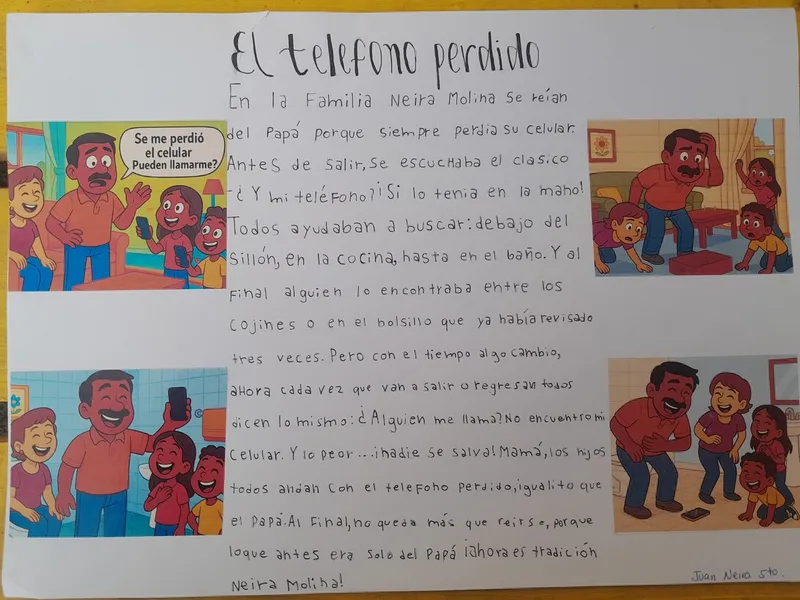 El telefono perdido
En la Familia Neira Molina se reían
del Papá porque siempre perdia su celular.
Antes de salir, se escuchaba el clasico
-¿Y mi teléfono?¡Si lo tenia en la mano!
Todos ayudaban a buscar: debajo del
sillón, en la cocina, hasta en el baño. Y al
final alguien lo encontraba entre los
cojines o en el bolsillo que ya había revisado
tres veces. Pero con el tiempo algo cambio,
ahora cada vez que van a salir o regresan todos
dicen lo mismo: ¿Alguien me llama? No encuentro mi
celular. Y lo peor...¡nadie se salva! Mamá, los hijos
todos andan con el telefono perdido, igualito que
el Papá. Al final, no queda más que reirse, porque
loque antes era solo del Papá ¡ahora es tradición
Neira Molina!
Se me perdió
el celular
Pueden llamarme?
Juan Neira 5to.